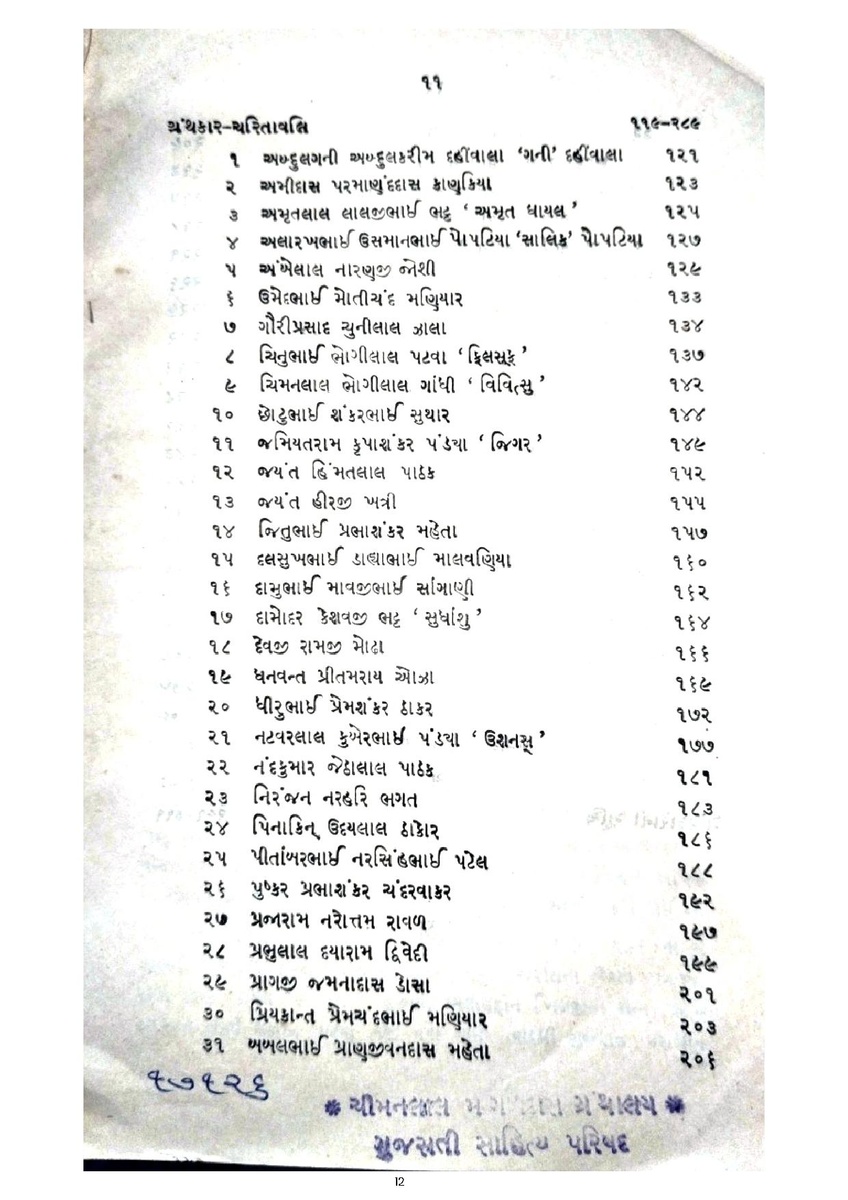 ૧૧
ગ્રંથકાર-ચરિતાવલિ ૧૧૯-૨૮૯
૧ અબ્દુલગની અબ્દુલકરીમ દહીંવાલા ‘ગની’ દહીંવાલા ૧૨૧
૨ અમીદાસ પરમાણંદદાસ કાણકિયા ૧૨૩
૩ અમૃતલાલ લાલજીભાઈ ભટ્ટ ‘ અમૃત ઘાયલ ’ ૧૨૫
૪ અલારખભાઈ ઉસમાનભાઈ પોપટિયા ‘સાલિક’ પોપટિયા ૧૨૭
૫ અંબેલાલ નારણજી જોશી ૧૨૯
૬ ઉમેદભાઈ મોતીચંદ મણિયાર ૧૩૩
૭ ગૌરીપ્રસાદ ચુનીલાલ ઝાલા ૧૩૪
૮ ચિનુભાઈ ભોગીલાલ પટવા ‘ ફિલસૂફ ’ ૧૩૭
૯ ચિમનલાલ ભોગીલાલ ગાંધી ‘ વિવિત્સુ ’ ૧૪૨
૧૦ છોટુભાઈ શંકરભાઈ સુથાર ૧૪૪
૧૧ જમિયતરામ કૃપાશંકર પંડ્યા ‘ જિગર ’ ૧૪૯
૧૨ જયંત હિંમતલાલ પાઠક ૧૫૨
૧૩ જયંત હીરજી ખત્રી ૧૫૫
૧૪ જિતુભાઈ પ્રભાશંકર મહેતા ૧૫૭
૧૫ દલસુખભાઈ ડાહ્યાભાઈ માલવણિયા ૧૬૦
૧૬ દાસુભાઈ માવજીભાઈ સાંગાણી ૧૬૨
૧૭ દામોદર કેશવજી ભટ્ટ ‘ સુધાંશુ ’ ૧૬૪
૧૮ દેવજી રામજી મોઢા ૧૬૬
૧૯ ધનવન્ત પ્રીતમરાય ઓઝા ૧૬૯
૨૦ ધીરુભાઈ પ્રેમશંકર ઠાકર ૧૭૨
૨૧ નટવરલાલ કુબેરભાઈ પંડ્યા ‘ ઉશનસ્ ’ ૧૭૭
૨૨ નંદકુમાર જેઠાલાલ પાઠક ૧૮૧
૨૩ નિરંજન નરહરિ ભગત ૧૮૩
૨૪ પિનાકિન્ ઉદયલાલ ઠાકોર ૧૮૬
૨૫ પીતાંબરભાઈ નરસિંહભાઈ પટેલ ૧૮૮
૨૬ પુષ્કર પ્રભાશંકર ચંદરવાકર ૧૯૨
૨૭ પ્રજારામ નરોત્તમ રાવળ ૧૯૭
૨૮ પ્રભુલાલ દયારામ દ્વિવેદી ૧૯૯
૨૯ પ્રાગજી જમનાદાસ ડોસા ૨૦૧
૩૦ પ્રિયકાન્ત પ્રેમચંદભાઈ મણિયાર ૨૦૩
૩૧ બબલભાઈ પ્રાણજીવનદાસ મહેતા ૨૦૬
૧૭૧૨૬
ચીમનલાલ ગ્રંથાલય
ગુજરાતી સાહિત્ય પરિષદ
12